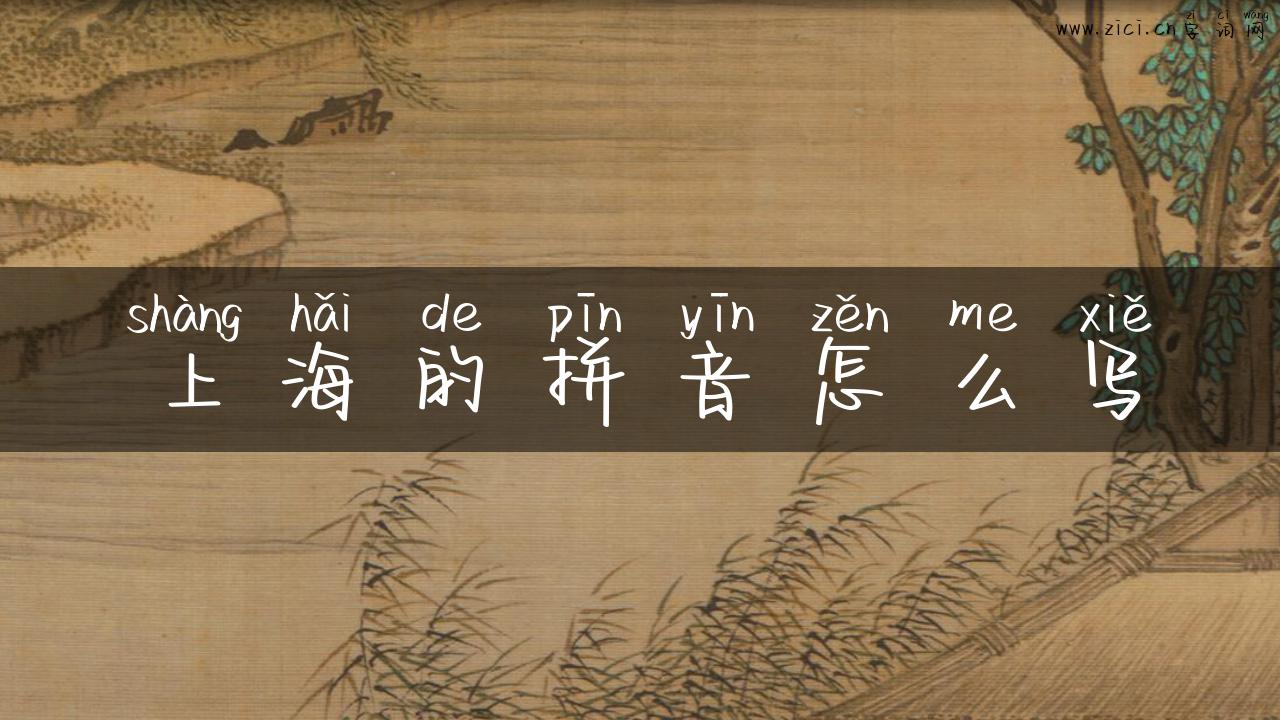 zì cí wǎng
www.zici.cn字词网
shàng hǎi de pīn yīn zěn me xiě
上海的拼音怎么写